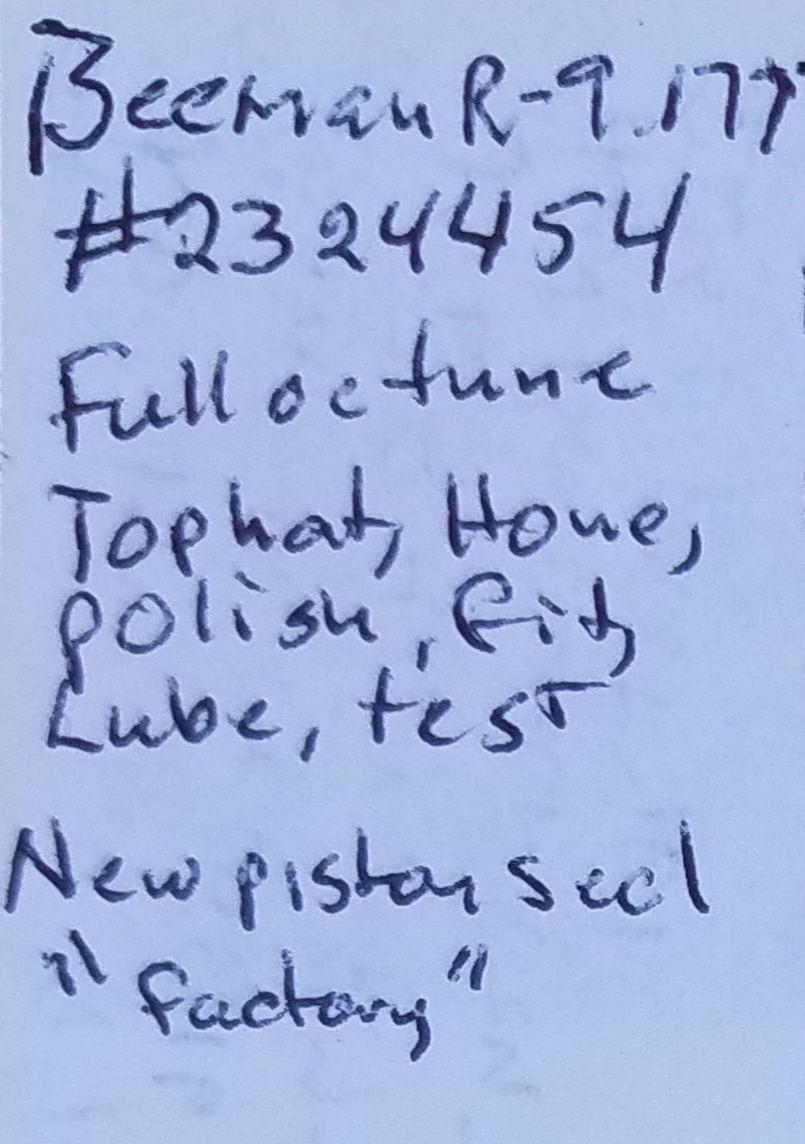 Beeman R-9 .177
#2324454
Full oc tune
Tophat, Hone,
polish, fit,
Lube, test
New piston seal
"factory"